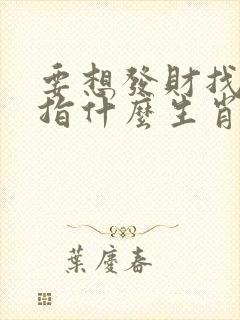 要想發財找
指什麼生肖
葉慶春